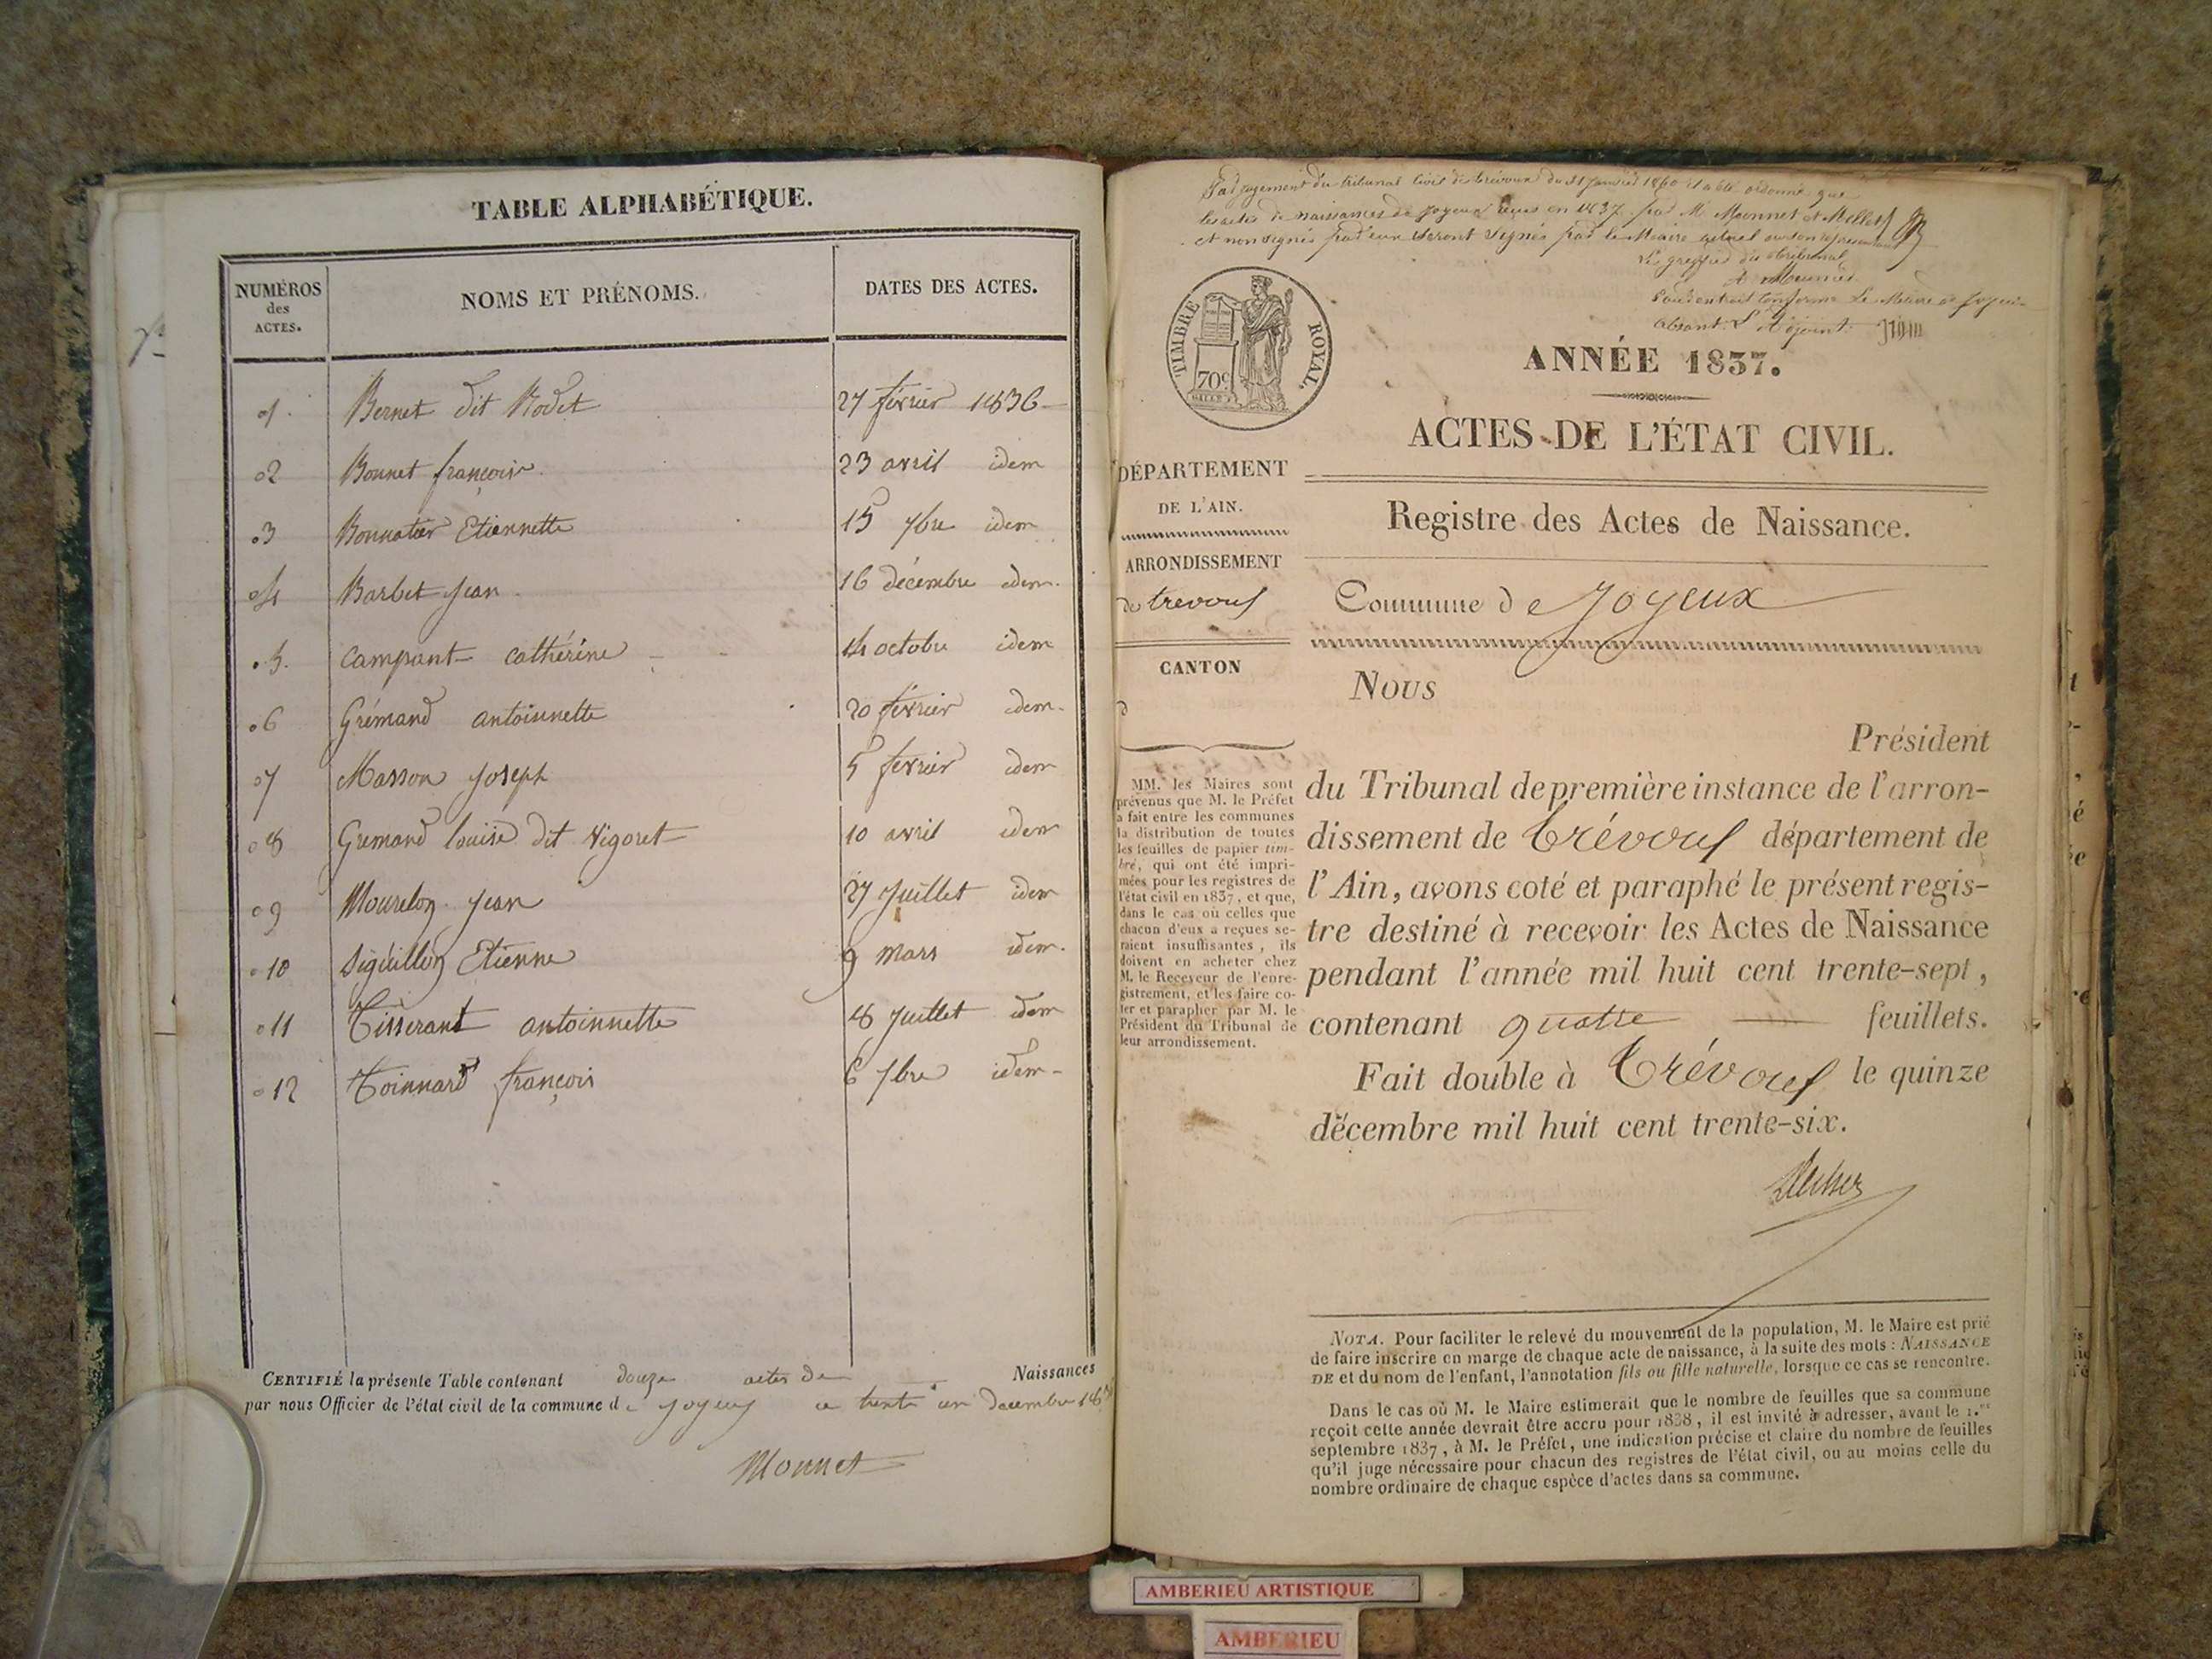 TABLE ALPHABÉTIQUE.
NUMÉROS des ACTES. NOMS ET PRÉNOMS. DATES DES ACTES.
1. Bernet dit Rodet 27 février 1836
2 Bonnet françois 23 avril idem
3 Bonnatier Etiennette 15 7bre idem
4 Barbet Jean 16 décembre idem.
5. Campant cathérine 14 octobre idem
6 Grémand antoinnette 20 février idem.
7 Masson Joseph 5 février idem
8 Gremand louise dit Vigoret 10 avril idem
9 Mourelon Jean 27 Juillet idem
10 Siguillon Etienne 9 mars idem.
11 Tisserant antoinnette 8 Juillet idem
12 Toinnard françois 6 7bre idem
CERTIFIÉ la présente Table contenant douze actes de Naissances
par nous Officier de l'état civil de la commune de Joyeux ce trente un decembre 183
Monnet
Par jugement du tribunal Civil de trévoux du 31 Janvier 1860 il a été ordonné que
les actes de naissances de Joyeux reçus en 1837 par M Monnet et Millet
et non signés par eux seront signés par le Maire actuel ou son représentant
Le greffier du tribunal
Pour extrait Conforme Le Maire de Joyeux
absent. L'Adjoint.
TIMBRE ROYAL.
70c
ANNÉE 1837.
ACTES DE L'ÉTAT CIVIL.
DÉPARTEMENT
DE L'AIN.
Registre des Actes de Naissance.
ARRONDISSEMENT
de trevoux
Commune de Joyeux
CANTON
d
Nous
Président
du Tribunal de première instance de l'arron-
dissement de trévoux département de
l'Ain, avons coté et paraphé le présent regis-
tre destiné à recevoir les Actes de Naissance
pendant l'année mil huit cent trente-sept,
contenant quatre feuillets.
Fait double à trévoux le quinze
décembre mil huit cent trente-six.
MM. les Maires sont
prévenus que M. le Préfet
a fait entre les communes
la distribution de toutes
les feuilles de papier tim-
bré, qui ont été impri-
mées pour les registres de
l'état civil en 1837, et que,
dans le cas où celles que
chacun d'eux a reçues se-
raient insuffisantes, ils
doivent en acheter chez
M. le Receveur de l'enre-
gistrement, et les faire co-
ter et parapher par M. le
Président du Tribunal de
leur arrondissement.
NOTA. Pour faciliter le relevé du mouvement de la population, M. le Maire est prié
de faire inscrire en marge de chaque acte de naissance, à la suite des mots : NAISSANCE
DE et du nom de l'enfant, l'annotation fils ou fille naturelle, lorsque ce cas se rencontre.
Dans le cas où M. le Maire estimerait que le nombre de feuilles que sa commune
reçoit cette année devrait être accru pour 1838, il est invité à adresser, avant le 1.er
septembre 1837, à M. le Préfet, une indication précise et claire du nombre de feuilles
qu'il juge nécessaire pour chacun des registres de l'état civil, ou au moins celle du
nombre ordinaire de chaque espèce d'actes dans sa commune.
AMBERIEU ARTISTIQUE
AMBERIEU